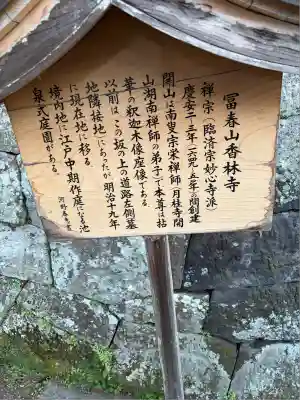 冨春山香林寺
禅宗(臨済宗妙心寺派)
慶安二-三年(一六四九-五〇年)の間創建
開山は南叟宗栄禅師(月桂寺開
山湖南禅師の弟子)で本尊は拈
華の釈迦木像座像である。
以前は、この坂の上の道路左側墓
地隣接地にあったが、明治十九年
に現在地に移る。
境内地に江戸中期作庭になる池
泉式庭園がある。